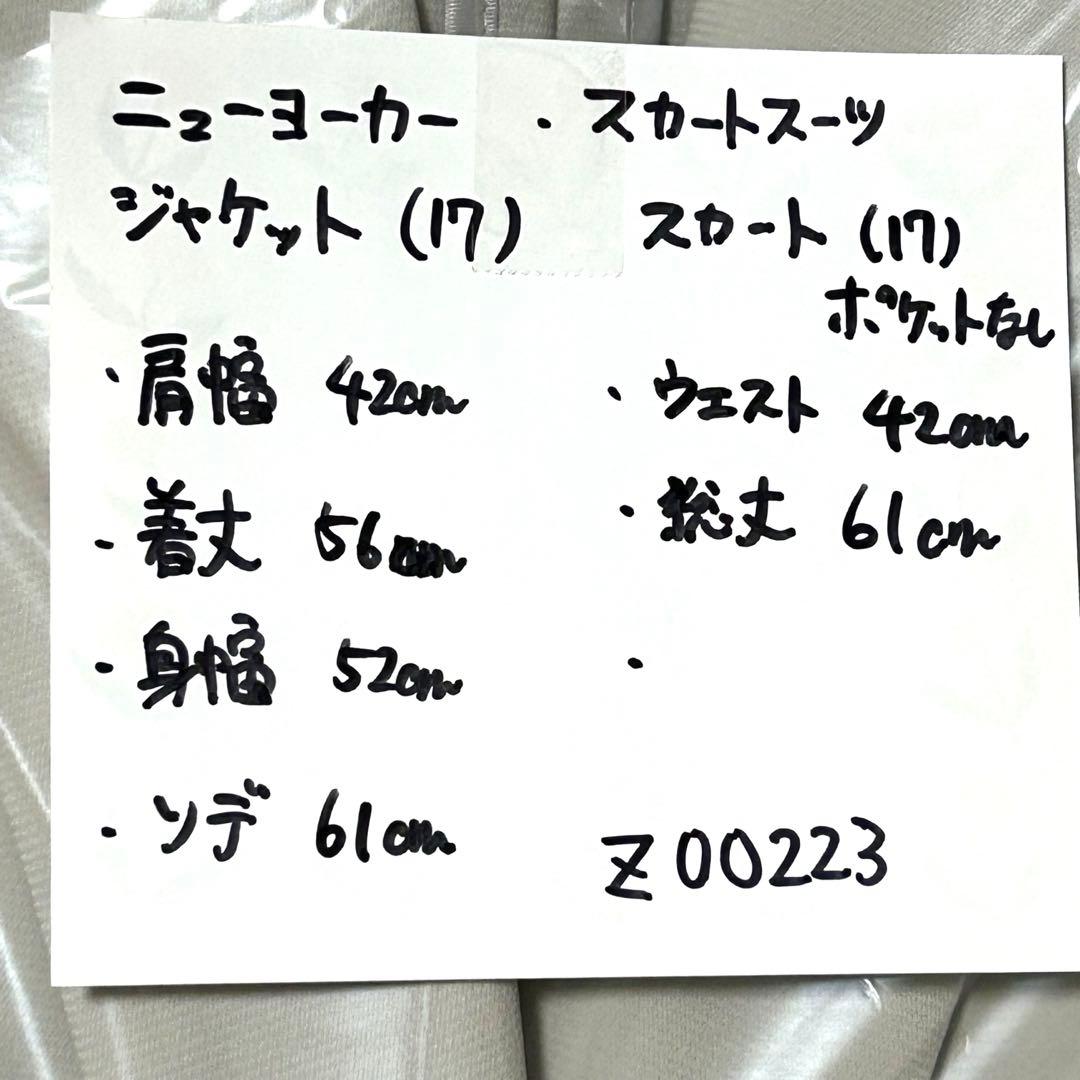 ニューヨーカー ・ スカートスーツ
ジャケット (17)
・肩幅 42cm
・着丈 56cm
・身幅 52cm
・ソデ 61cm
スカート (17)
ポケットなし
・ウェスト 42cm
・総丈 61cm
・
Z00223